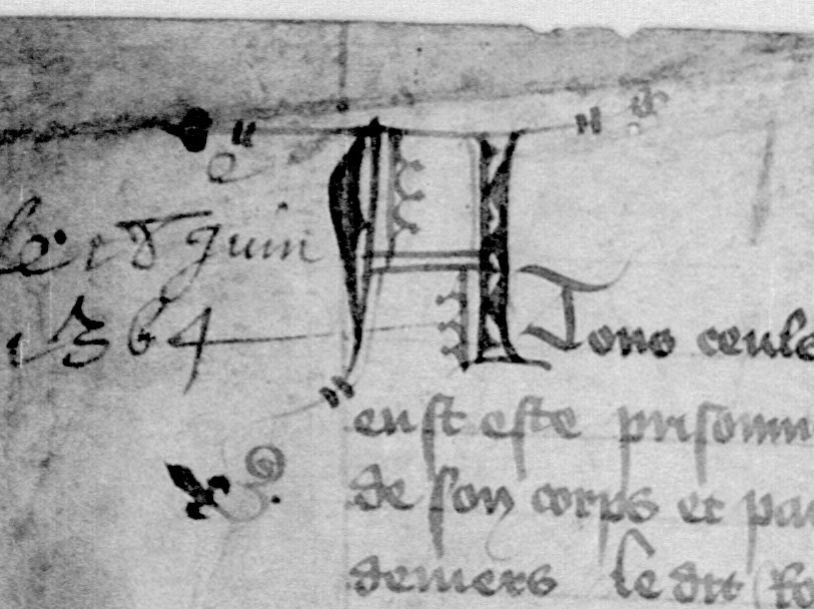 le 18 juin
1364
A Tous ceuls
eust este prisonn
de son corps et pa
deuers le dit Ro